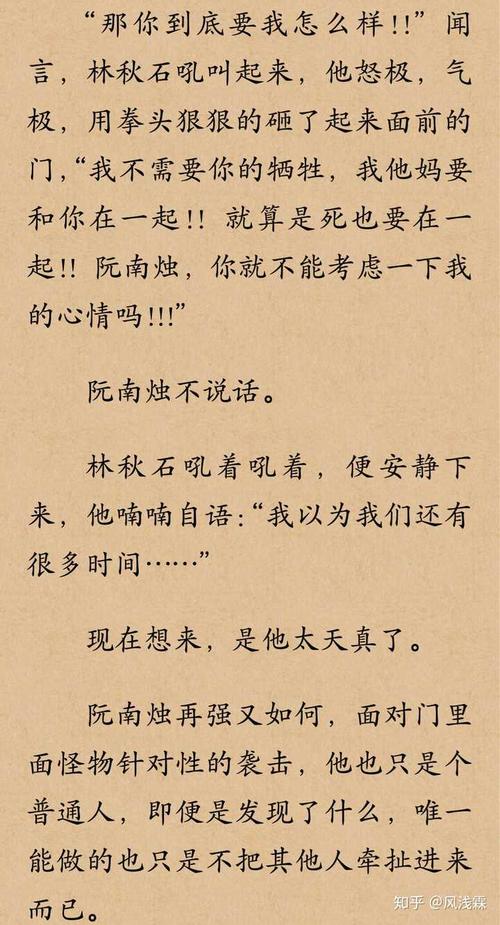 “那你到底要我怎么样!!”闻
言，林秋石吼叫起来，他怒极，气
极，用拳头狠狠的砸了起来面前的
门，“我不需要你的牺牲，我他妈要
和你在一起!! 就算是死也要在一
起!! 阮南烛，你就不能考虑一下我
的心情吗!!!”
阮南烛不说话。
林秋石吼着吼着，便安静下
来，他喃喃自语：“我以为我们还有
很多时间……”
现在想来，是他太天真了。
阮南烛再强又如何，面对门里
面怪物针对性的袭击，他也只是个
普通人，即便是发现了什么，唯一
能做的也只是不把其他人牵扯进来
而已。
知乎 @风浅霖